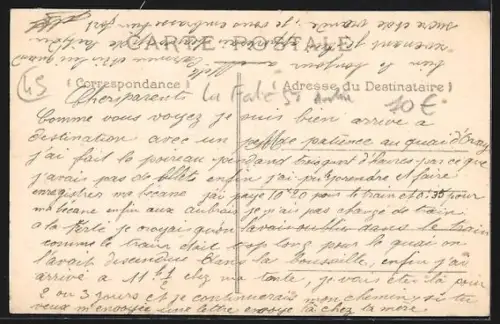 sucre et de viande. je vous embrasse bien fort
CARTE POSTALE
45
( Correspondance )
( Adresse du Destinataire )
La Ferté St Aubin
10€
Chers parents
Comme vous voyez je suis bien arrivé a
destination avec un peu de patience au quai d'Orsay
j'ai fait le poireau pendant trois quart d'heures parce que
j'avais pas de billets enfin j'ai pu prendre et faire
enregistrer ma bécane j'ai payé 10f20 pour le train et 0f35 pour
ma bécane enfin aux aubrais je n'ai pas changé de train
a la Ferté je croyais qu'on l'avait oublier dans le train
comme le train était trop long pour le quai on
l'avait descendue dans la broussaille, enfin j'ai
arrivé a 11h ½ chez ma tante, je vais être là pour
2 ou 3 jours et je continuerais mon chemin, si tu
veux m'envoyer une lettre envoye la chez la mère